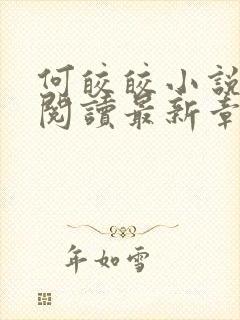 何皎皎小說
閱讀最新章
年如雪